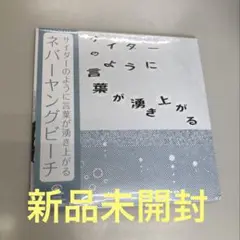 サイダーのように言葉が湧き上がる
ネバーヤングビーチ
サイダー
のように
言葉
が湧き上がる
新品未開封